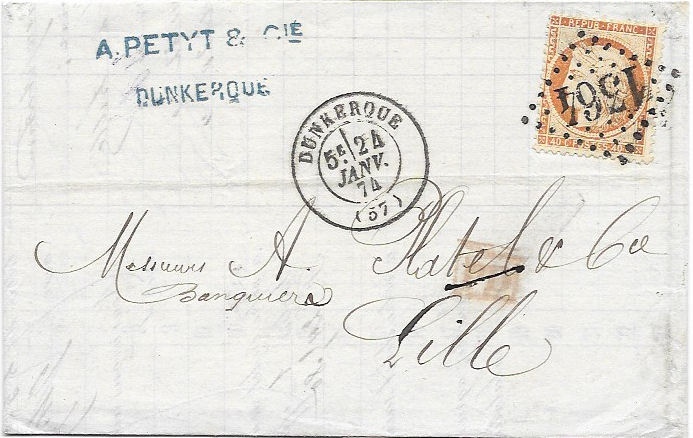 A. PETYT & CIE
DUNKERQUE
REPUB. FRANC.
1364
40 C
DUNKERQUE
5E 24
JANV.
74
(57)
Messieurs A. Platel & Cie
Banquiers
Lille